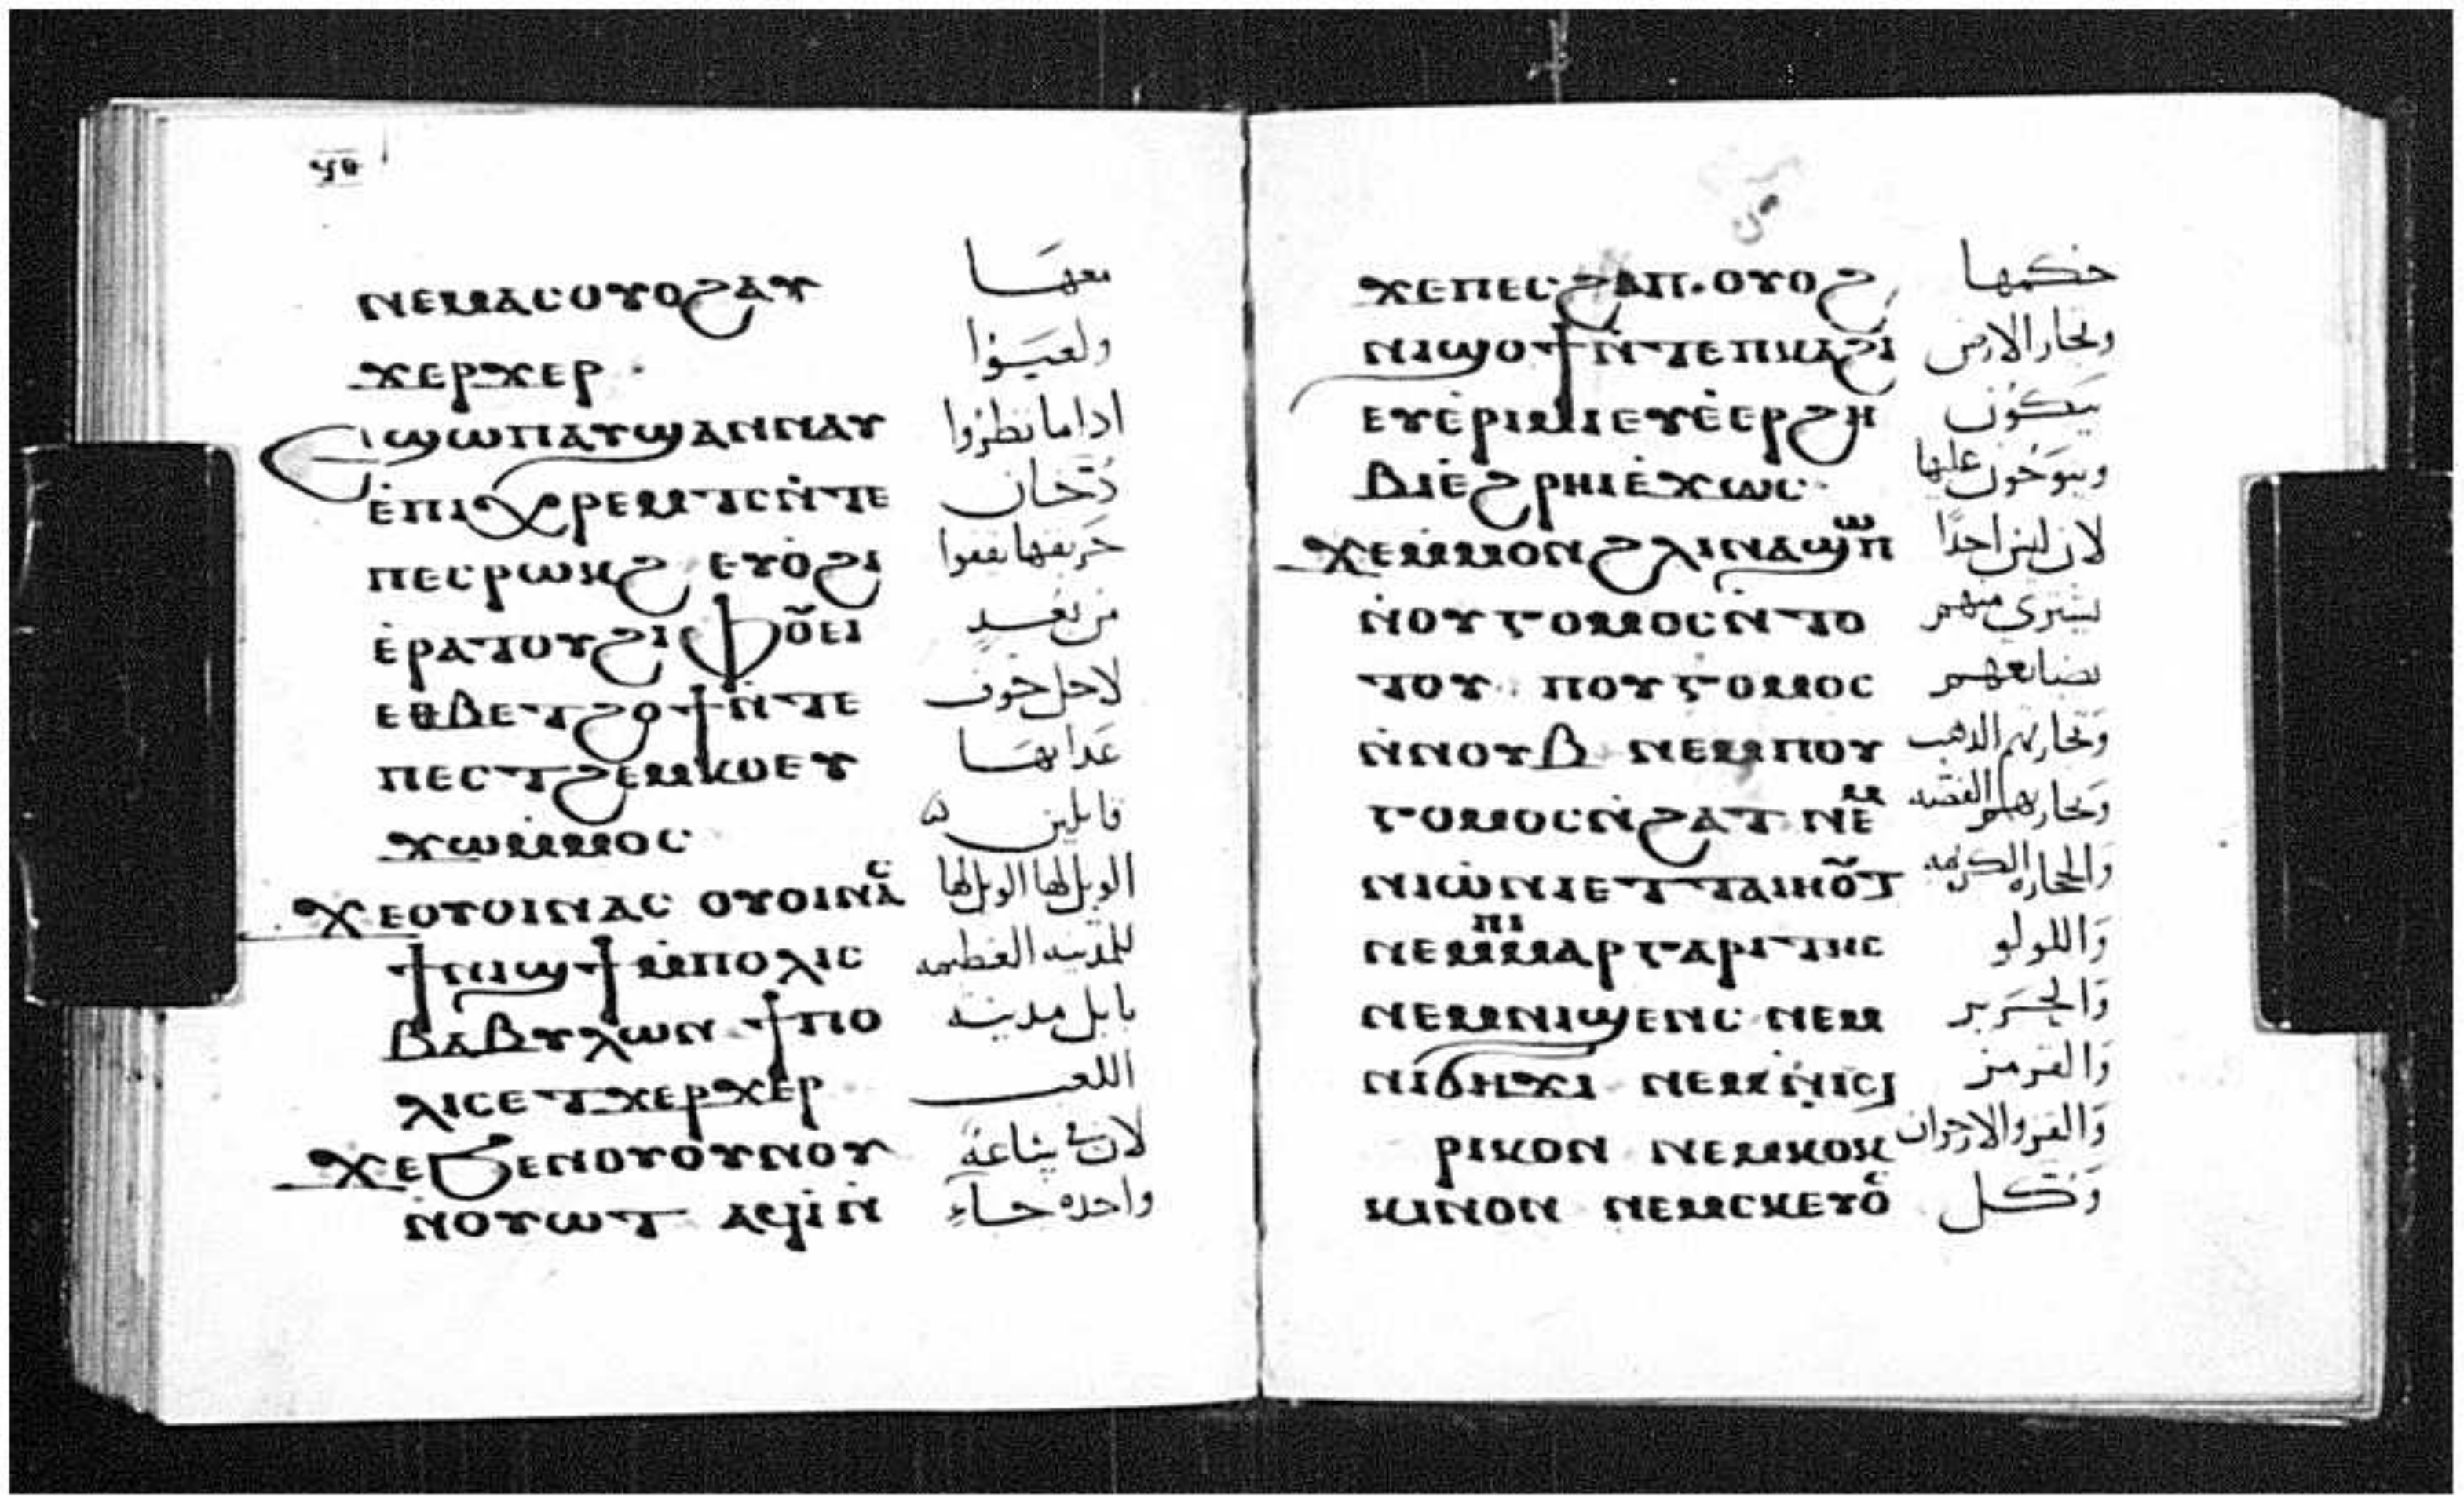 ⲛⲉⲙⲁⲥⲟⲩⲟϩⲁⲩ معها
ϫⲉⲣϫⲉⲣ · ولعبوا
ⲉϣⲱⲡⲁⲩϣⲁⲛⲛⲁⲩ اداما نظروا
ⲉ̀ⲡⲓⲭⲣⲉⲙⲧⲥⲛ̀ⲧⲉ دخان
ⲡⲉⲥⲣⲱⲕϩ ⲉⲩⲟ̀ϩⲓ حريقها يقفوا
ⲉ̀ⲣⲁⲧⲟⲩϩⲓⲫⲟⲩⲉⲓ من بعيد
ⲉⲑⲃⲉⲧϩⲟϯⲛ̀ⲧⲉ لاجل خوف
ⲡⲉⲥⲧϩⲉⲙⲕⲟⲉⲩ عدابها
ϫⲱⲙ̀ⲙⲟⲥ قايلين
ϫⲉⲟⲩⲟⲓⲛⲁⲥ ⲟⲩⲟⲓⲛⲁⲥ الويل لها الويل لها
ϯⲛⲓϣϯⲙ̀ⲡⲟⲗⲓⲥ للمدينه العظيمه
ⲃⲁⲃⲩⲗⲱⲛ ϯⲡⲟ بابل مدينة
ⲗⲓⲥⲉⲧϫⲉⲣϫⲉⲣ اللعب
ϫⲉϧⲉⲛⲟⲩⲟⲩⲛⲟⲩ لان في ساعة
ⲛ̀ⲟⲩⲱⲧ ⲁϥⲓ̀ⲛ̀ واحده جاء
ϫⲉⲡⲉⲥϩⲁⲡ·ⲟⲩⲟϩ حكمها
ⲛⲓϣⲟϯⲛ̀ⲧⲉⲡⲕⲁϩⲓ وتجار الارض
ⲉⲩⲉ̀ⲣⲓⲙⲓⲉⲩⲉ̀ⲉⲣϩⲏ يبكون
ⲃⲓⲉ̀ϩⲣⲏⲓⲉ̀ϫⲱⲥ· وينوحون عليها
ϫⲉⲙ̀ⲙⲟⲛϩⲗⲓⲛⲁϣⲱⲡ لان ليس احدًا
ⲛ̀ⲟⲩⲅⲟⲙⲟⲥⲛ̀ⲧⲟ يشتري منهم
ⲧⲟⲩ ⲡⲟⲩⲅⲟⲙⲟⲥ بضايعهم
ⲛ̀ⲛⲟⲩⲃ ⲛⲉⲙⲡⲟⲩ وتجارتهم الدهب
ⲅⲟⲙⲟⲥⲛ̀ϩⲁⲧ ⲛⲉⲙ وتجارتهم الفضه
ⲛⲓⲱ̀ⲛⲓⲉⲧⲧⲁⲓⲏⲟⲩⲧ والحجاره الكريمه
ⲛⲉⲙⲡⲓⲙⲁⲣⲅⲁⲣⲓⲧⲏⲥ واللولو
ⲛⲉⲙⲛⲓϣⲉⲛⲥ ⲛⲉⲙ والحرير
ⲛⲓϭⲏϫⲓ ⲛⲉⲙⲛ̀ⲓⲥⲓ والقرمز
ⲣⲓⲕⲟⲛ ⲛⲉⲙⲕⲟⲕ والقز والارجوان
ⲕⲓⲛⲟⲛ ⲛⲉⲙⲥⲕⲉⲩⲟⲥ وكل